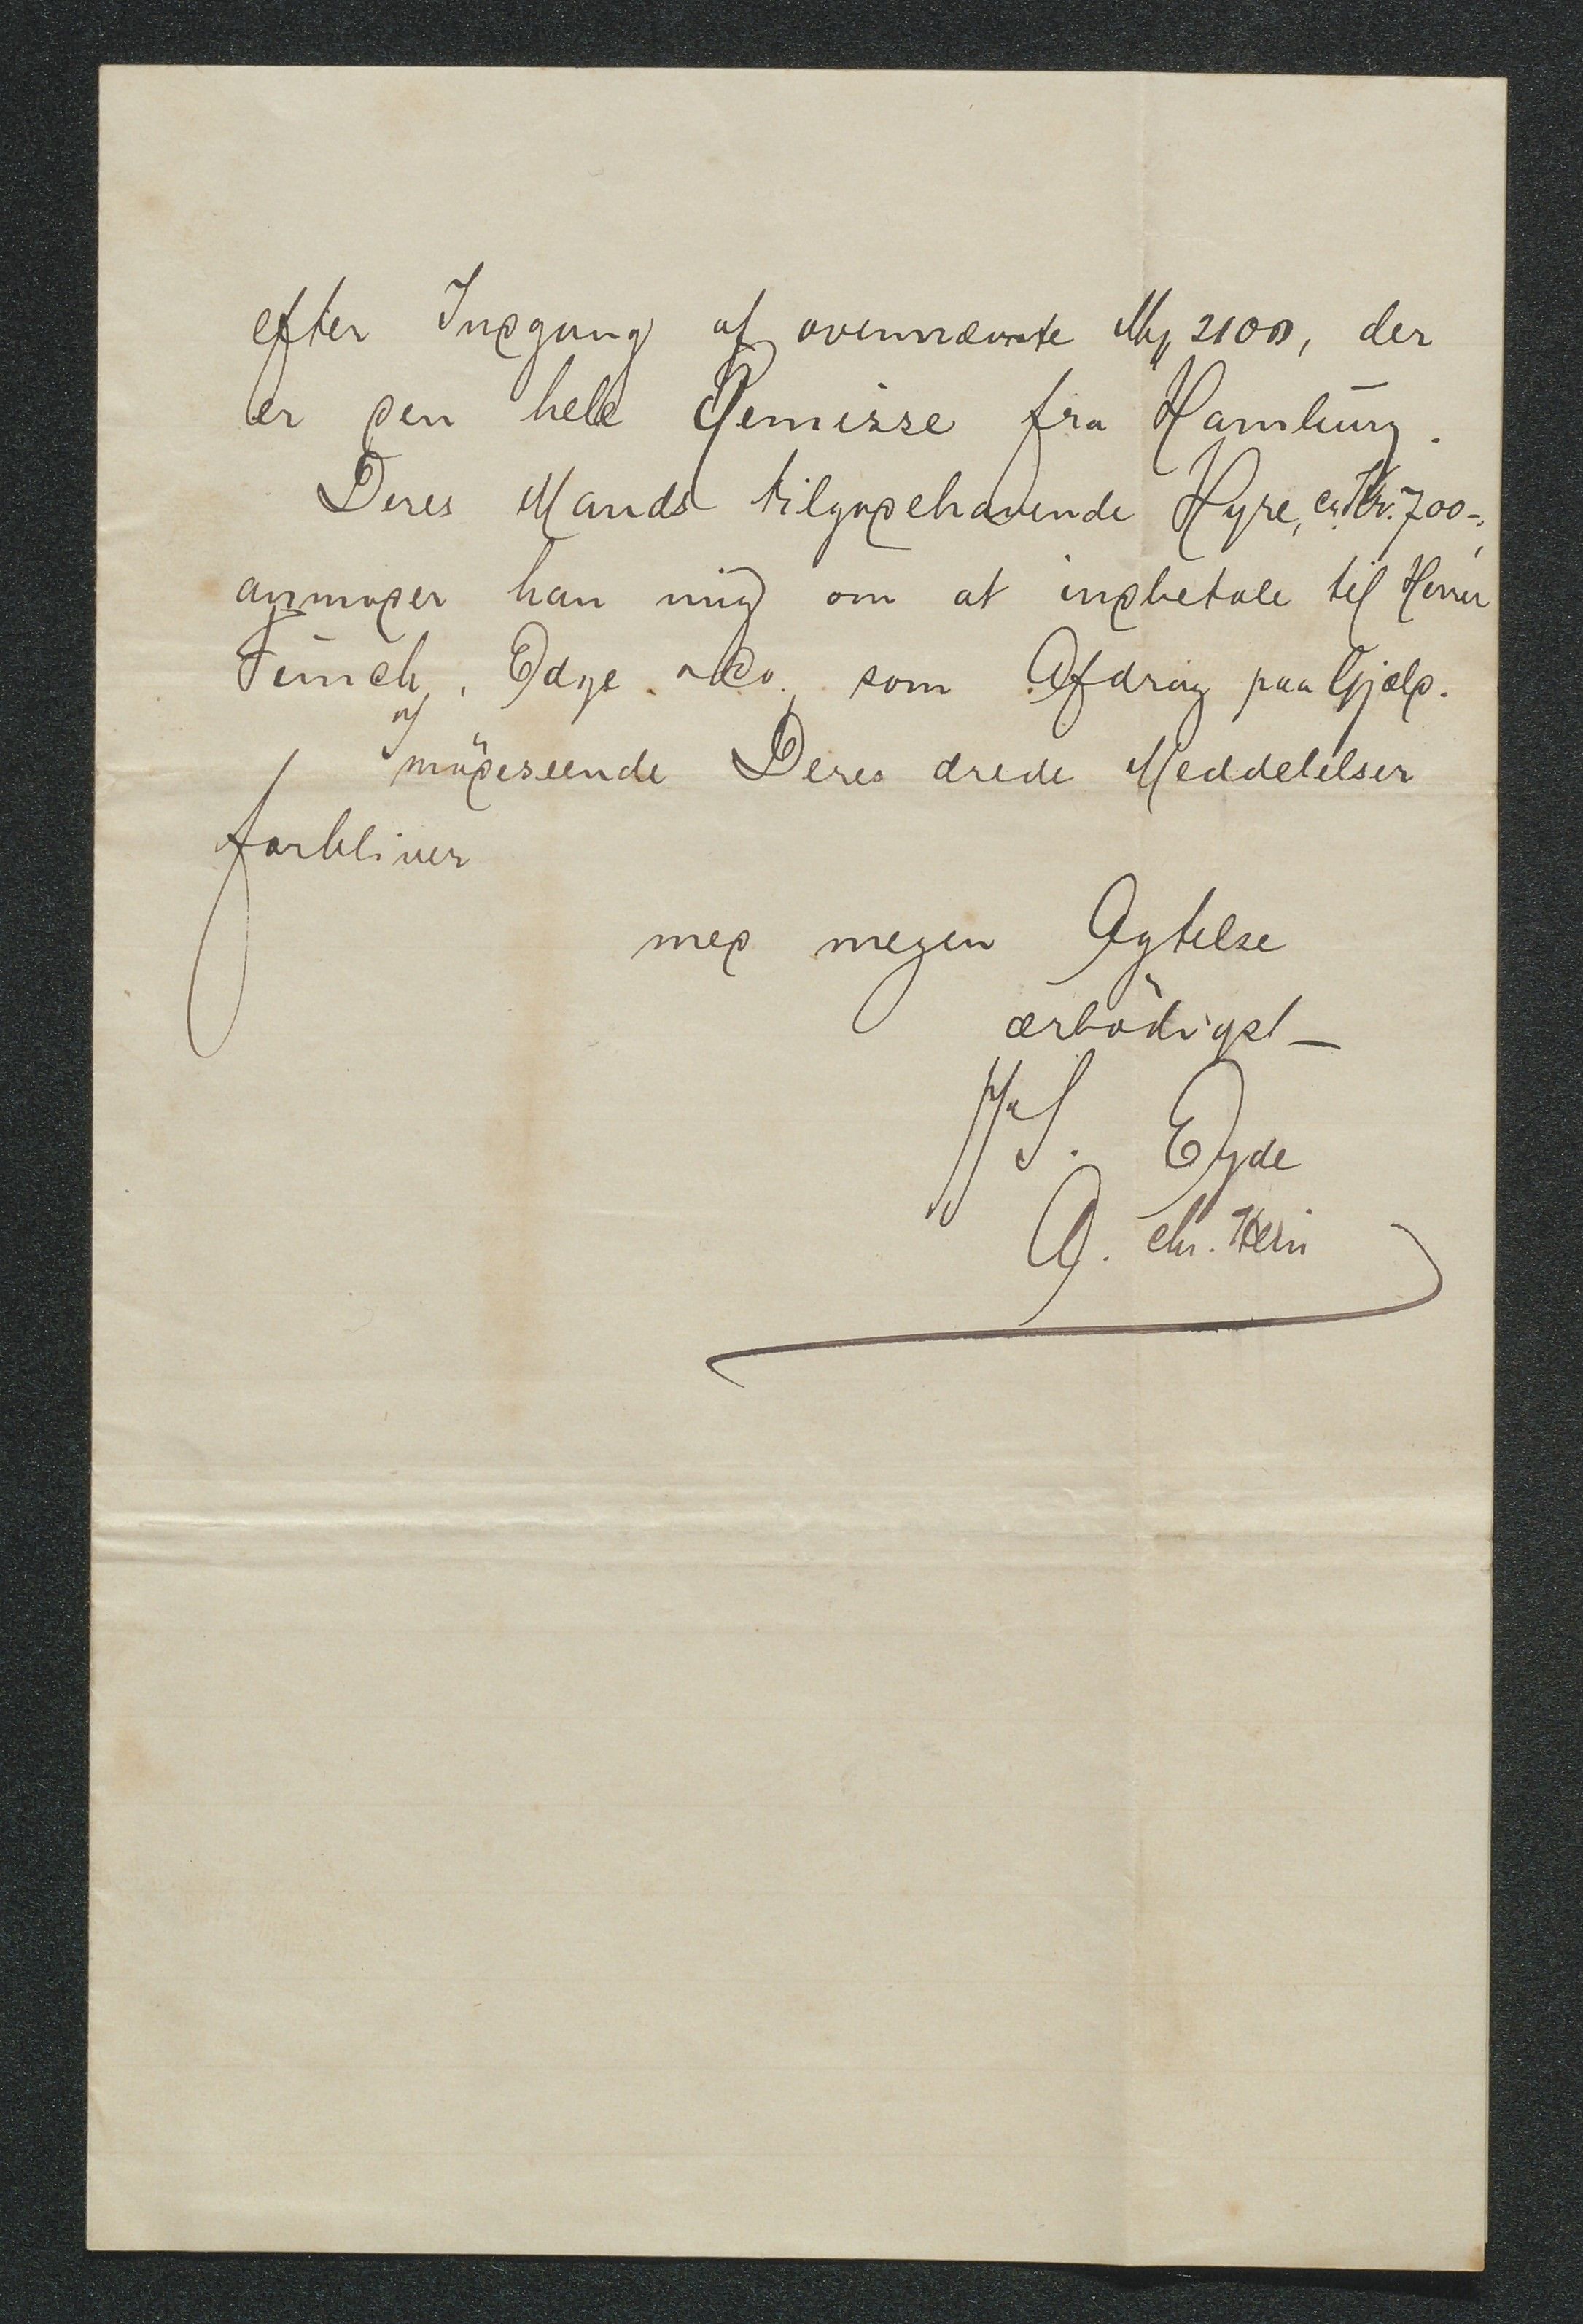 efter Indgang af ovennævnte Mk 2100, der
er den hele Remisse fra Hamburg.
Deres Mands tilgodehavende Hyre, ca Kr. 700-,
anmoder han mig om at indbetale til Herrer
Funch, Edye & Co., som Afdrag paa Gjæld.
Imødeseende Deres ærede Meddelelser
forbliver
med megen Agtelse
ærbødigst
S. Eyde
A. Chr.